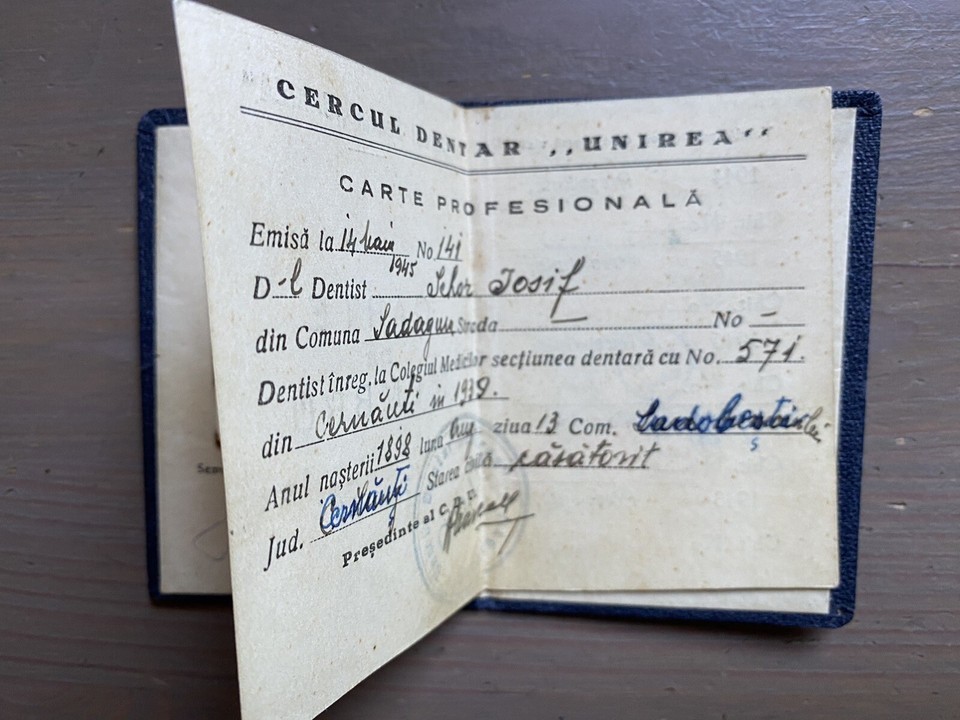 CERCUL DENTAR ,,UNIREA"
CARTE PROFESIONALĂ
Emisă la 14 Maiu 1945 No 141
D-l Dentist Schor Iosif
din Comuna Sadagura Strada No -
Dentist înreg. la Colegiul Medicilor secțiunea dentară cu No. 571.
din Cernăuti in 1939.
Anul nașterii 1898 luna Aug ziua 13 Com.
Jud. Cernăuţi Starea civilă căsătorit
Președinte al C. D. U.